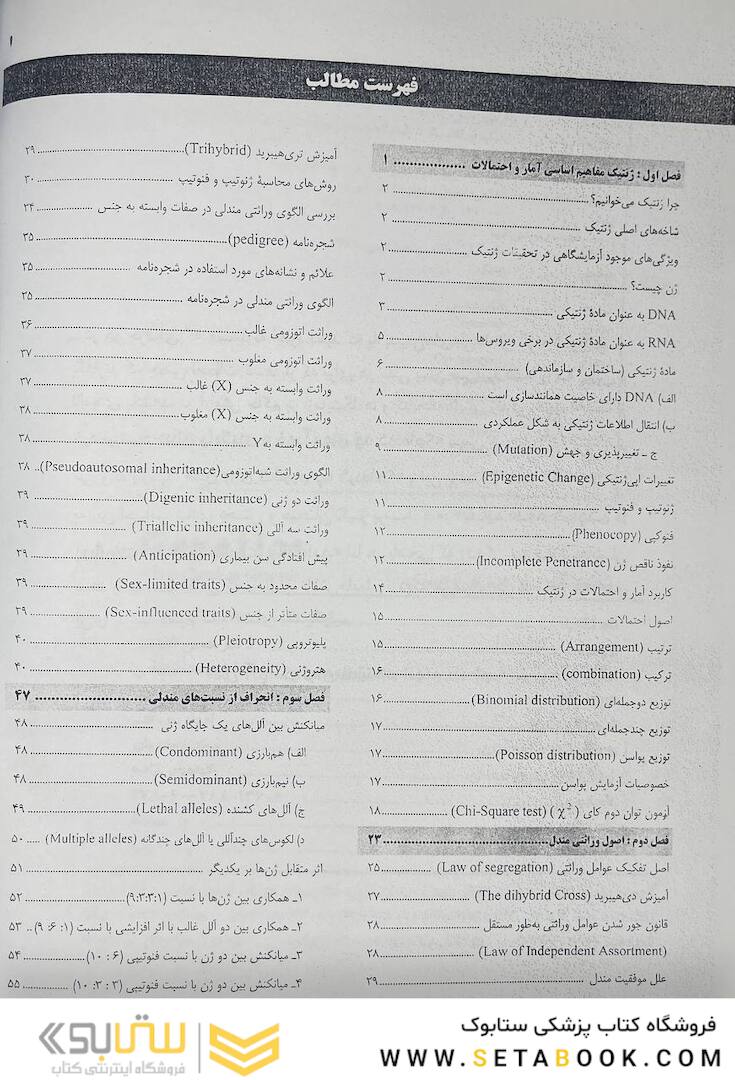 ۱
فهرست مطالب
فصل اول : ژنتیک مفاهیم اساسی آمار و احتمالات .................. ۱
چرا ژنتیک می‌خوانیم؟ .................. ۲
شاخه‌های اصلی ژنتیک .................. ۲
ویژگی‌های موجود آزمایشگاهی در تحقیقات ژنتیک .................. ۲
ژن چیست؟ .................. ۲
DNA به عنوان مادهٔ ژنتیکی .................. ۳
RNA به عنوان مادهٔ ژنتیکی در برخی ویروس‌ها .................. ۵
مادهٔ ژنتیکی (ساختمان و سازماندهی) .................. ۶
الف) DNA دارای خاصیت همانندسازی است .................. ۸
ب) انتقال اطلاعات ژنتیکی به شکل عملکردی .................. ۸
ج ـ تغییرپذیری و جهش (Mutation) .................. ۹
تغییرات اپی‌ژنتیکی (Epigenetic Change) .................. ۱۱
ژنوتیپ و فنوتیپ .................. ۱۱
فنوکپی (Phenocopy) .................. ۱۲
نفوذ ناقص ژن (Incomplete Penetrance) .................. ۱۲
کاربرد آمار و احتمالات در ژنتیک .................. ۱۴
اصول احتمالات .................. ۱۵
ترتیب (Arrangement) .................. ۱۵
ترکیب (combination) .................. ۱۶
توزیع دوجمله‌ای (Binomial distribution) .................. ۱۶
توزیع چندجمله‌ای .................. ۱۷
توزیع پواسن (Poisson distribution) .................. ۱۷
خصوصیات آزمایش پواسن .................. ۱۷
آزمون توان دوم کای (χ²) (Chi-Square test) .................. ۱۸
فصل دوم : اصول وراثتی مندل .................. ۲۳
اصل تفکیک عوامل وراثتی (Law of segregation) .................. ۲۵
آمیزش دی‌هیبرید (The dihybrid Cross) .................. ۲۷
قانون جور شدن عوامل وراثتی به‌طور مستقل .................. ۲۸
(Law of Independent Assortment) .................. ۲۸
علل موفقیت مندل .................. ۲۹
آمیزش تری‌هیبرید (Trihybrid) .................. ۲۹
روش‌های محاسبهٔ ژنوتیپ و فنوتیپ .................. ۳۰
بررسی الگوی وراثتی مندلی در صفات وابسته به جنس .................. ۳۴
شجره‌نامه (pedigree) .................. ۳۵
علائم و نشانه‌های مورد استفاده در شجره‌نامه .................. ۳۵
الگوی وراثتی مندلی در شجره‌نامه .................. ۳۵
وراثت اتوزومی غالب .................. ۳۶
وراثت اتوزومی مغلوب .................. ۳۷
وراثت وابسته به جنس (X) غالب .................. ۳۷
وراثت وابسته به جنس (X) مغلوب .................. ۳۸
وراثت وابسته به Y .................. ۳۸
الگوی وراثت شبه‌اتوزومی (Pseudoautosomal inheritance) .. ۳۸
وراثت دو ژنی (Digenic inheritance) .................. ۳۹
وراثت سه آللی (Triallelic inheritance) .................. ۳۹
پیش افتادگی سن بیماری (Anticipation) .................. ۳۹
صفات محدود به جنس (Sex-limited traits) .................. ۳۹
صفات متأثر از جنس (Sex-influenced traits) .................. ۳۹
پلیوتروپی (Pleiotropy) .................. ۴۰
هتروژنی (Heterogeneity) .................. ۴۰
فصل سوم : انحراف از نسبت‌های مندلی .................. ۴۷
میانکنش بین آلل‌های یک جایگاه ژنی .................. ۴۸
الف) هم‌بارزی (Condominant) .................. ۴۸
ب) نیم‌بارزی (Semidominant) .................. ۴۸
ج) آلل‌های کشنده (Lethal alleles) .................. ۴۹
د) لکوس‌های چندآللی یا آلل‌های چندگانه (Multiple alleles) ..... ۵۰
اثر متقابل ژن‌ها بر یکدیگر .................. ۵۱
۱ـ همکاری بین ژن‌ها با نسبت (۹:۳:۳:۱) .................. ۵۲
۲ـ همکاری بین دو آلل غالب با اثر افزایشی با نسبت (۱: ۶: ۹) .. ۵۳
۳ـ میانکنش بین دو ژن با نسبت فنوتیپی (۶ : ۱۰) .................. ۵۴
۴ـ میانکنش بین دو ژن با نسبت فنوتیپی (۳ : ۳ : ۱۰) .................. ۵۵
فروشگاه کتاب پزشکی ستابوک
WWW.SETABOOK.COM
ستابوک
فروشگاه اینترنتی کتاب